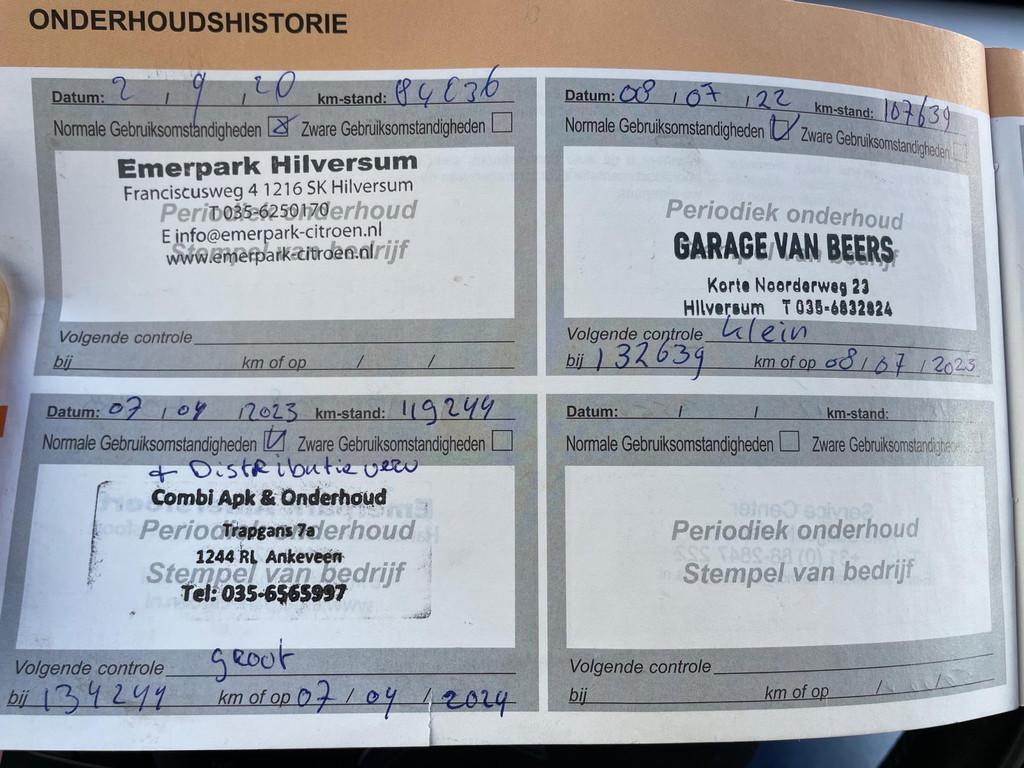 ONDERHOUDSHISTORIE
Datum: 2 / 9 / 20 km-stand: 84636
Normale Gebruiksomstandigheden ☒ Zware Gebruiksomstandigheden ☐
Emerpark Hilversum
Franciscusweg 4 1216 SK Hilversum
Periodiek onderhoud
T 035-6250170
E info@emerpark-citroen.nl
Stempel van bedrijf
www.emerpark-citroen.nl
Volgende controle
bij km of op / /
Datum: 08 / 07 / 22 km-stand: 107639
Normale Gebruiksomstandigheden ☑ Zware Gebruiksomstandigheden ☐
Periodiek onderhoud
GARAGE VAN BEERS
Korte Noorderweg 23
Hilversum T 035-6832824
Volgende controle klein
bij 132639 km of op 08 / 07 / 2023
Datum: 07 / 04 / 2023 km-stand: 119244
Normale Gebruiksomstandigheden ☑ Zware Gebruiksomstandigheden ☐
+ Distributie verv
Combi Apk & Onderhoud
Periodiek onderhoud
Trapgans 7a
1244 RL Ankeveen
Stempel van bedrijf
Tel: 035-6565997
Volgende controle groot
bij 134244 km of op 07 / 04 / 2024
Datum: / / km-stand:
Normale Gebruiksomstandigheden ☐ Zware Gebruiksomstandigheden
Periodiek onderhoud
Stempel van bedrijf
Volgende controle
bij km of op / /